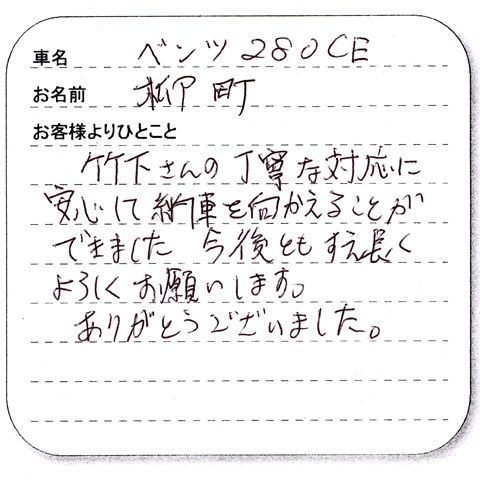 車名 ベンツ 280CE
お名前 柳町
お客様よりひとこと
竹下さんの丁寧な対応に
安心して納車を向かえることが
できました 今後とも すえ長く
よろしくお願いします。
ありがとうございました。